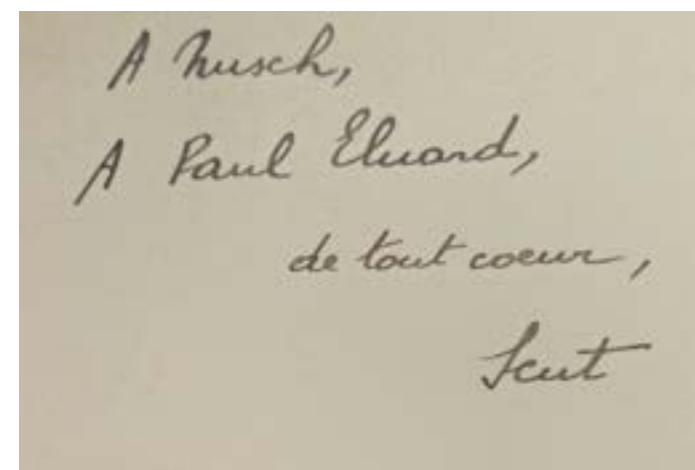 A Nusch,
A Paul Eluard,
de tout coeur,
Scut